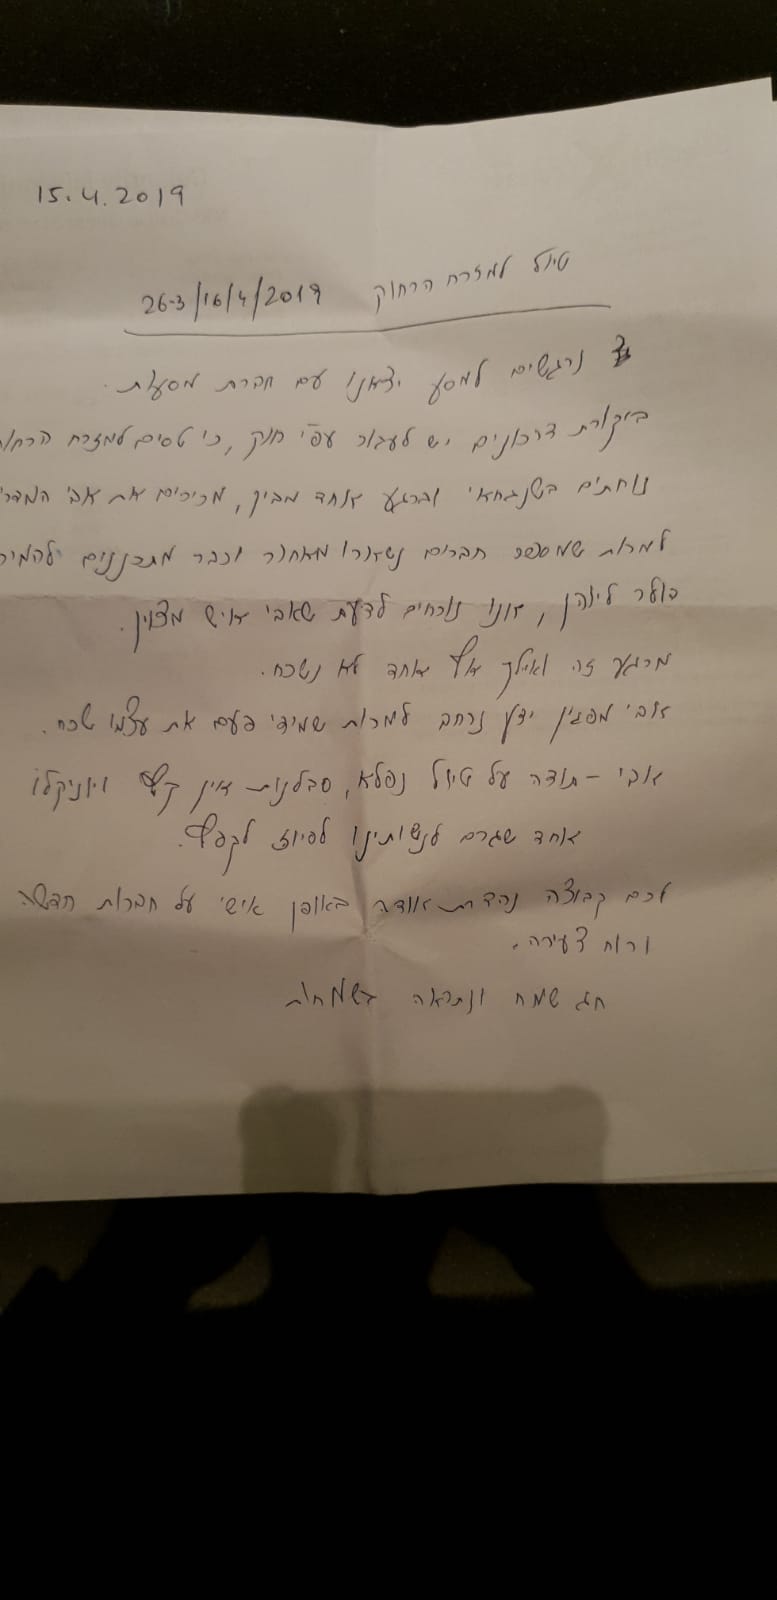 15.4.2019
טיול למזרח הרחוק 26-3/16/4/2019
נרגשים למסע יצאנו עם חברת מסעות.
ביקורת דרכונים יש לעבור עפ"י חוק, כי טסים למזרח הרחוק
נוחתים בשנגחאי וברגע אחד מביק, מכירים את אבי המדרי
למרות שמספר חברים נשארו מאחור וכבר מתכננים להמיר
דולר ליואן, אנו נוכחים לדעת שאבי איש מצוין.
מרגע זה ואילך אף אחד לא נשכח.
אבי מפגין ידע נרחב למרות שמידי פעם את עצמו שכח.
אבי - תודה על טיול נפלא, סבלנות אין קץ ויוניקלו
אחד שגרם לנשותינו לסיוז לקפוץ.
לכם קבוצה נהדרת אודה באופן אישי על חברות חדשה
ורוח צעירה.
חג שמח ונתראה בשמחות